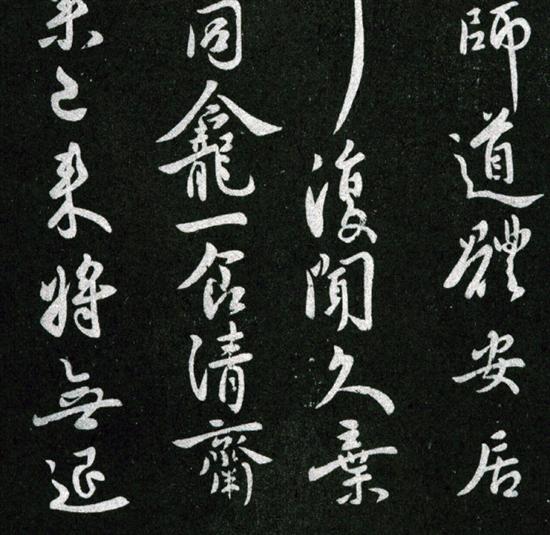 師道體安居
復聞久棄
同龕一食清齋
果已来將無退